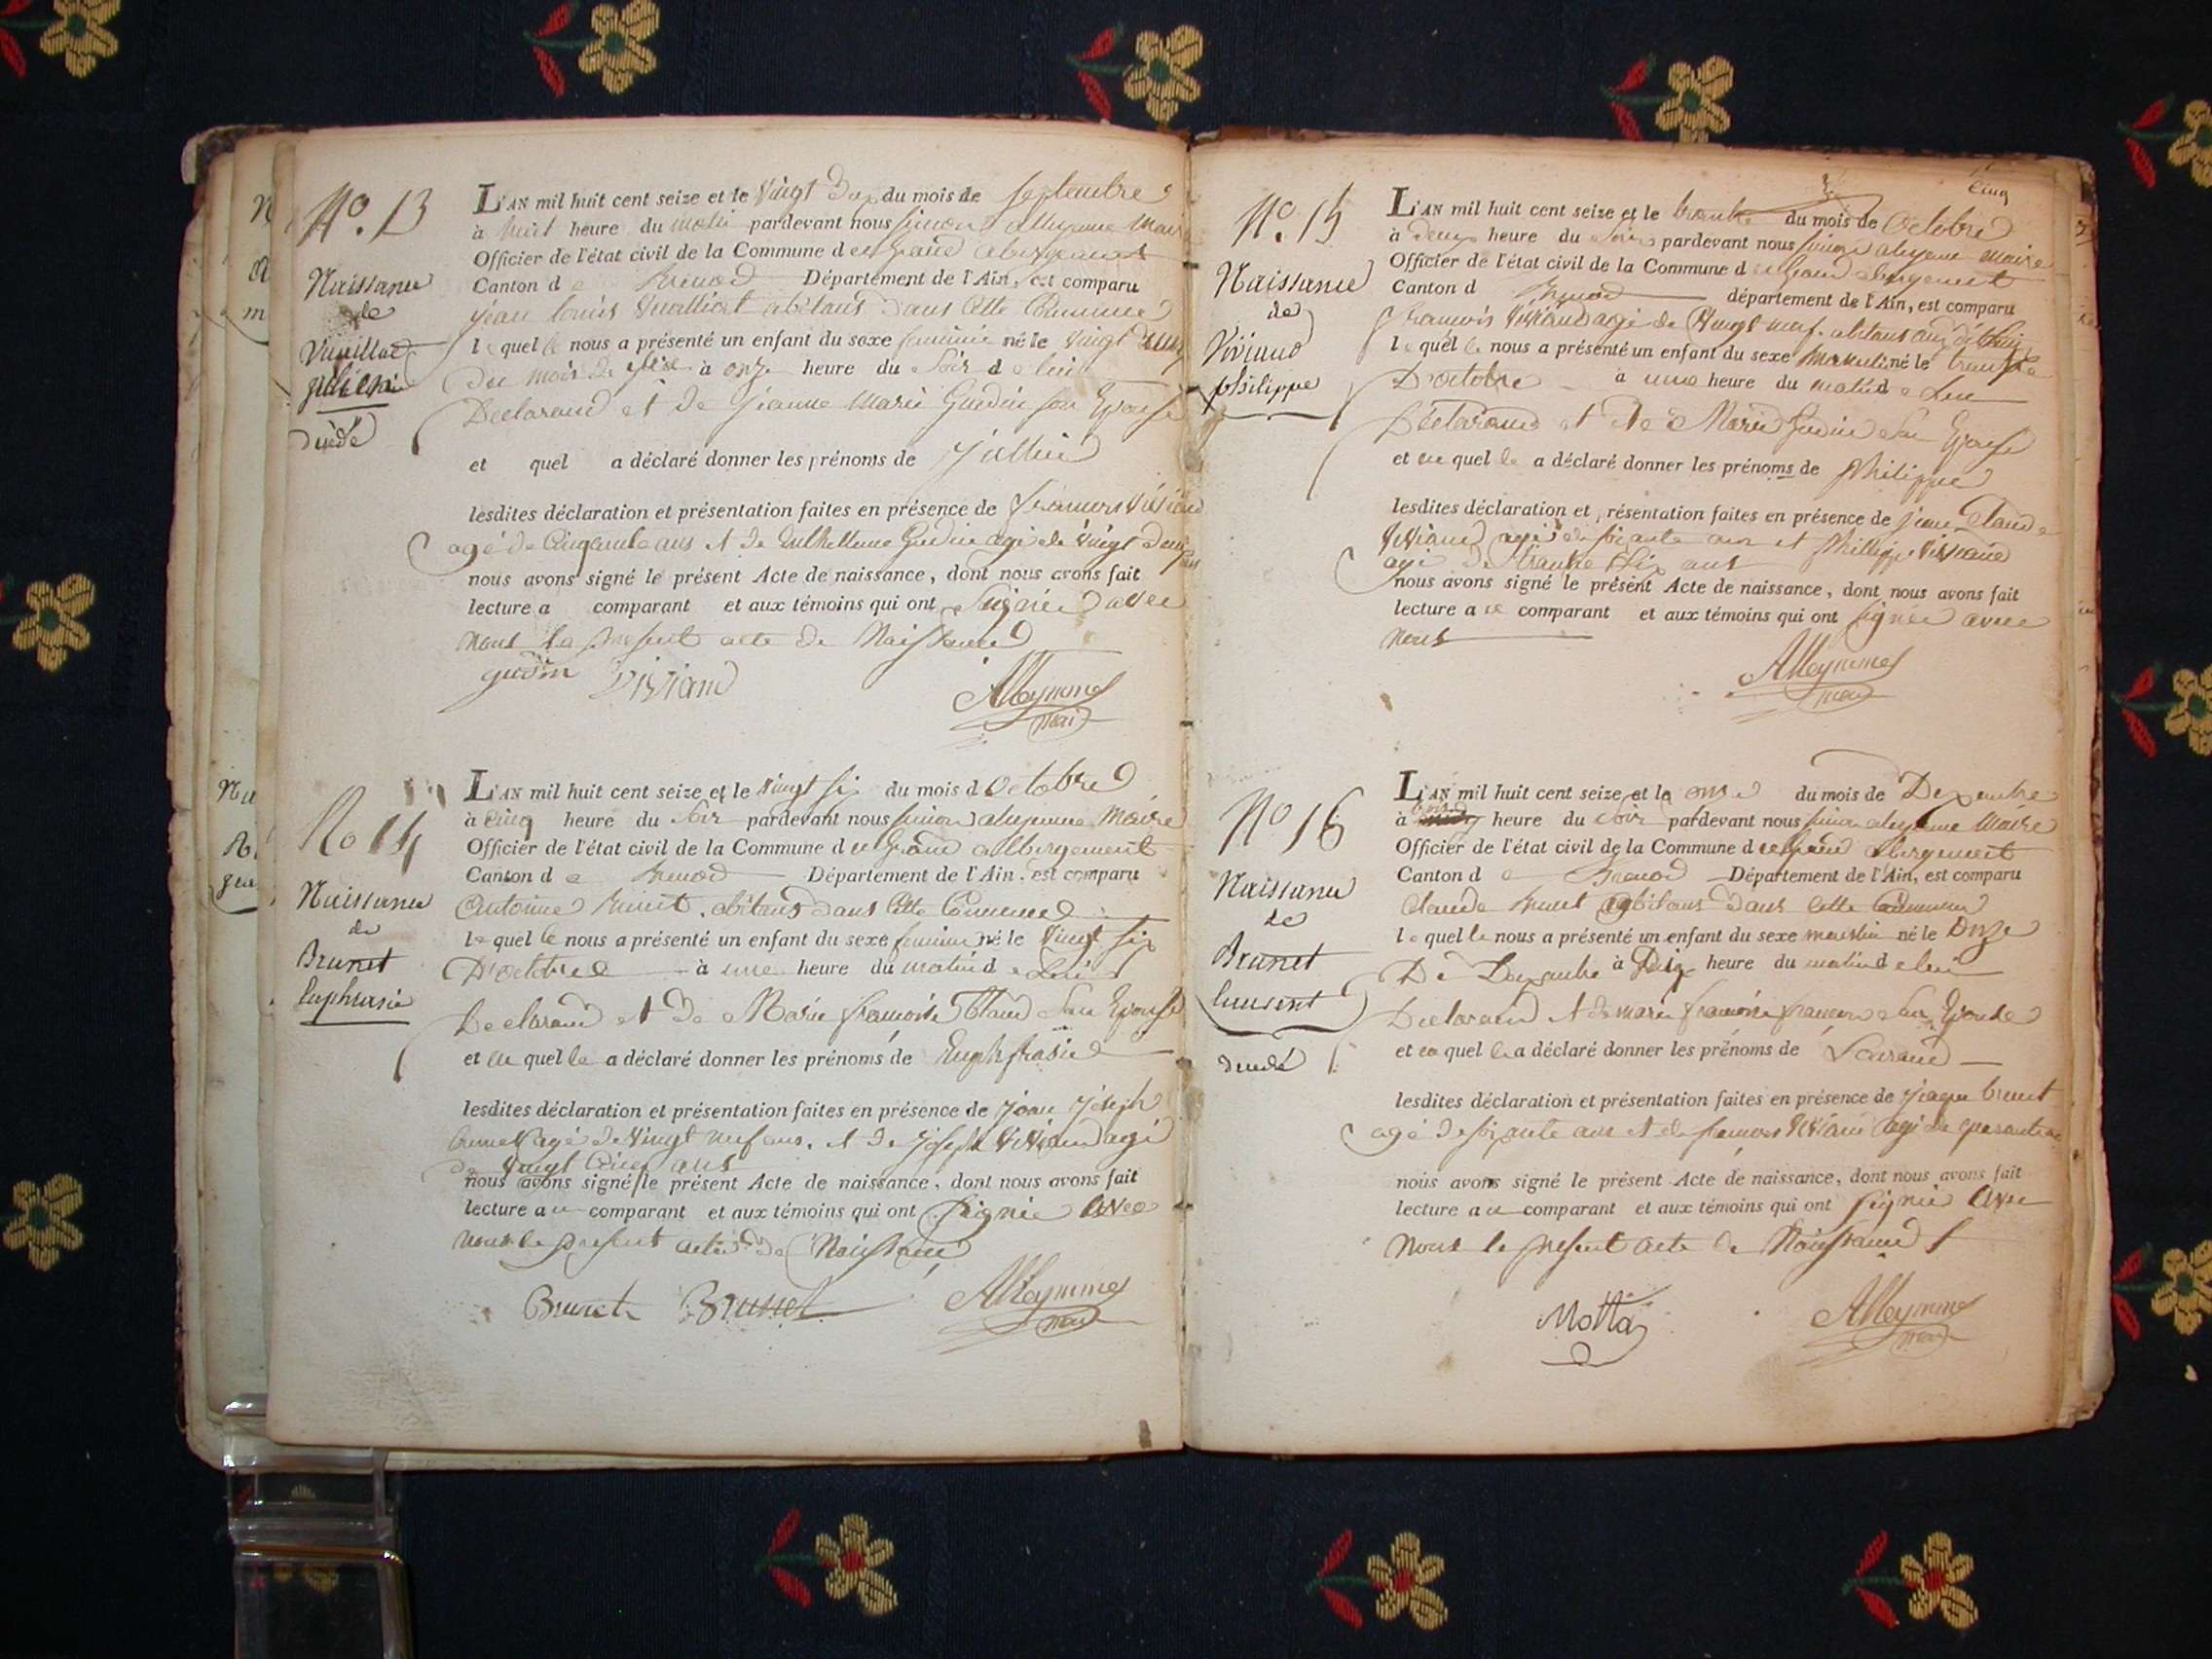 N°. 13
Naissance
de
Vuaillat
julienne
décédé
L'AN mil huit cent seize et le Vingt du mois de septembre
à huit heure du matin pardevant nous simon alleymme Maire
Officier de l'état civil de la Commune d u grand abergement
Canton d e Brenod Département de l'Ain, est comparu
jean louis Vuailliat abitant dans cette Commune
l e quel le nous a présenté un enfant du sexe feminin né le Vingt deux
Du mois de à onze heure du Soir d e lui
Declarand et de jeanne Marie Gudin son Epouse
et quel a déclaré donner les prénoms de
lesdites déclaration et présentation faites en présence de francois Viviand
agé de Cinquante ans et de Gudin agé de Vingt deux ans
nous avons signé le présent Acte de naissance, dont nous avons fait
lecture a comparant et aux témoins qui ont Signée avec
nous le present acte de Naissance
gudin Viviand Alleymme
maire
No 14
Naissance
de
Brunet
Euphrasie
L'AN mil huit cent seize et le Vingt six du mois d Octobre
à cinq heure du Soir pardevant nous simon aleymme Maire
Officier de l'état civil de la Commune d u Grand albergement
Canton d e Brenod Département de l'Ain, est comparu
Antoine brunet abitant dans Cette Commune
l e quel le nous a présenté un enfant du sexe feminin né le Vingt six
D'octobre à une heure du matin d e Lui
Declarand et De Marie francoise Son Epouse
et au quel le a déclaré donner les prénoms de Euphfrasie
lesdites déclaration et présentation faites en présence de jean joseph
brunet agé de Vingt neuf ans, et De joseph Viviand agé
De Vingt Cinq ans
nous avons signé le présent Acte de naissance, dont nous avons fait
lecture a u comparant et aux témoins qui ont Signée avec
nous le present acte de Naissance
Brunet Brunet Alleymme
maire
Cinq
N°. 15
Naissance
de
Viviand
philippe
L'AN mil huit cent seize et le trente du mois de Octobre
à deux heure du Soir pardevant nous simon aleymme maire
Officier de l'état civil de la Commune d u grand abergement
Canton d Brenod département de l'Ain, est comparu
francois Viviand agé de Vingt neuf abitant
l e quel le nous a présenté un enfant du sexe Masculin né le trente
D'octobre à une heure du matin d e Lui
Déclarand et De Marie Gudin Son Epouse
et au quel le a déclaré donner les prénoms de Philippe
lesdites déclaration et présentation faites en présence de jean Claude
Viviand agé de soixante ans et phillippe Viviand
agé De trante Six ans
nous avons signé le présent Acte de naissance, dont nous avons fait
lecture a u comparant et aux témoins qui ont signée avec
nous
Alleymme
maire
N° 16
Naissance
de
Brunet
laurent
décédé
L'AN mil huit cent seize et le onze du mois de Dexembre
à trois heure du soir pardevant nous simon aleymme Maire
Officier de l'état civil de la Commune d u grand abergement
Canton d e Brenod Département de l'Ain, est comparu
Claude brunet abitant dans cette Commune
l e quel le nous a présenté un enfant du sexe masculin né le Onze
De Dexembre à heure du matin d e lui
Declarand et de marie francoise son Epouse
et au quel le a déclaré donner les prénoms de Lauraud
lesdites déclaration et présentation faites en présence de brunet
agé de soixante ans et de francois Viviand agé de quarante
nous avons signé le présent Acte de naissance, dont nous avons fait
lecture a u comparant et aux témoins qui ont signée avec
nous le present acte de Naissance
Motta Alleymme
maire